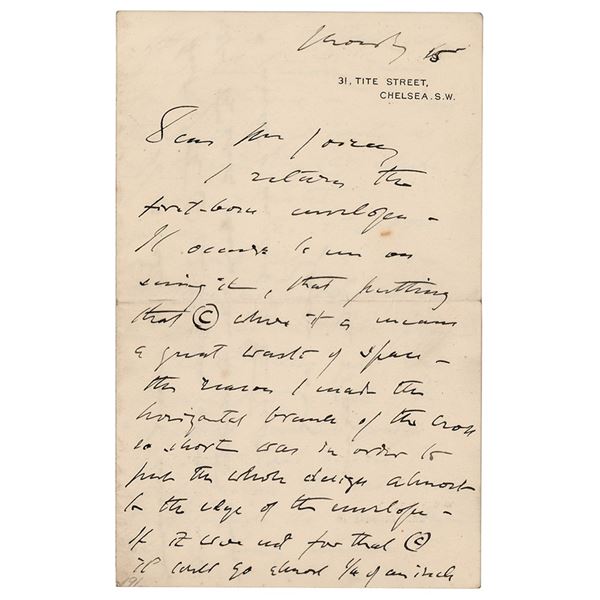 15
31, TITE STREET,
CHELSEA. S.W.
Dear Mr
I return the
first-born envelope —
It occurs to me on
seeing it, that putting
that © where it is means
a great waste of space —
the reason I made the
horizontal branch of the cross
so short was in order to
push the whole design almost
to the edge of the envelope —
If it were not for that ©
it could go almost 1/4 of an inch